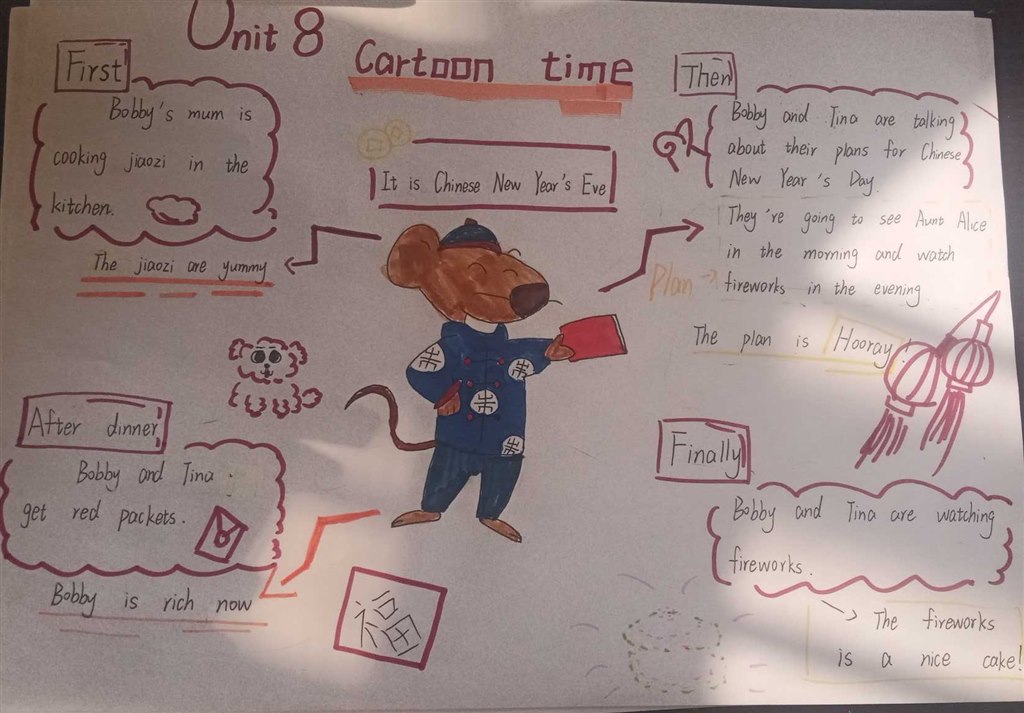 Unit 8
Cartoon time
First
Bobby's mum is
cooking jiaozi in the
kitchen.
The jiaozi are yummy
It is Chinese New Year's Eve
Then
Bobby and Tina are talking
about their plans for Chinese
New Year's Day.
They're going to see Aunt Alice
in the morning and watch
Plan →
fireworks in the evening
The plan is Hooray!
After dinner
Bobby and Tina
get red packets.
Bobby is rich now
福
Finally
Bobby and Tina are watching
fireworks.
The fireworks
is a nice cake!